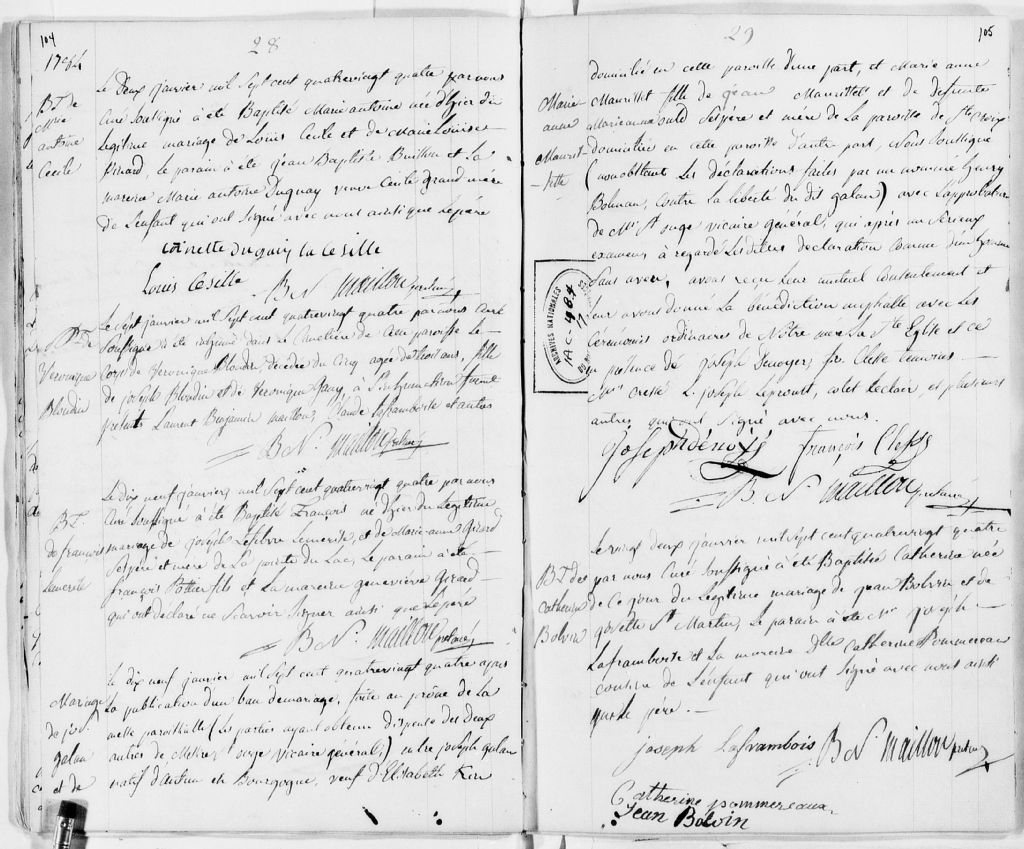 104
28
1784
Le Deux janvier mil Sept cent quatrevingt quatre par nous
Bt. de
Mrie
antoine
Cecile
Curé Soussigné à été Baptisé Marie antoine née d'hier du
Legitime mariage de Louis Cecile et de Marie Louise
Pinard, Le parain à été jean Baptiste Buillon et La
mareine Marie antoine Duguay veuve Cecile grand mère
de L'enfant qui ont Signé avec nous ainsi que Lepère
toinette duguay la Cesille
Louis Cesille
BN. Maillou prêtre
Le Sept janvier mil Sept cent quatrevingt quatre par nous Curé
de
Veronique
Blondin
Soussigné à été inhumé dans Le Cimetiere de cette paroisse Le
Corps de Veronique Blondin, décédée du Cinq agée de huit ans, fille
de joseph Blondin et de Veronique
présents Laurent Benjamin Maillou, Claude Laframboise et autres
BN. Maillou
Le dix neuf janvier mil Sept cent quatrevingt quatre par nous
BT.
de françois
Lemerise
Curé Soussigné à été Baptisé François né d'hier du Legitime
mariage de joseph Lefebvre Lemerise, et de Marie anne Girard
Ses père et mere de La pointe du Lac, Le parain à été
françois Pottier fils et La mareine geneviève Girard
qui ont déclaré ne Scavoir Signer ainsi que Le père
BN. Maillou
Le dix neuf janvier mil Sept cent quatrevingt quatre après
Mariage
de jos.
galan
et de
La publication d'un ban de mariage, faite au prône de La
messe paroissialle (Les parties ayant obtenu dispense des deux
autres de Mr St. ongé vicaire general) entre joseph galan
natif d'autun en Bourgogne, veuf d'Elisabeth
105
29
domiciliée en cette paroisse d'une part, et Marie anne
Marie
anne
Maurist
-tette
fille de jean et de defunte
Marie anne ould Ses père et mere de La paroisse de Ste
domiciliée en cette paroisse d'autre part, Nous Soussigné
(nonobstant Les déclarations faites par un nommé henry
Bolman, contre La liberté du dit galan) avec L'approbation
de Mr. St ongé vicaire général, qui après un Serieux
examen, à regardé Les dittes declaration comme d'un homme
Sans aveu, avons reçu Leur mutuel Consentement et
Leur avons donné La bénédiction nuptialle avec Les
Cérémonies ordinaires de Nôtre mere La Ste Eglise et ce
en présence de joseph Denoyer, fr. Clesse
Cressé L. joseph Leproust, Colet Leclair, et plusieurs
autres qui ont Signé avec nous.
ARCHIVES NATIONALES
Joseph dénoyé
françois Cless
BN. Maillou
Le vingt deux janvier mil Sept cent quatrevingt quatre
BT. de
Catherine
Bolvin
par nous Curé Soussigné à été Baptisée Catherine née
de ce jour du Legitime mariage de jean Bolvin et de
josette St. Martin, Le parain à été Mr joseph
Laframboise et La mareine Delle Catherine Pommereau
cousine de L'enfant qui ont Signé avec nous ainsi
que Le pere.
joseph Laframbois
BN. Maillou
Catherine pommereaux
Jean Bolvin